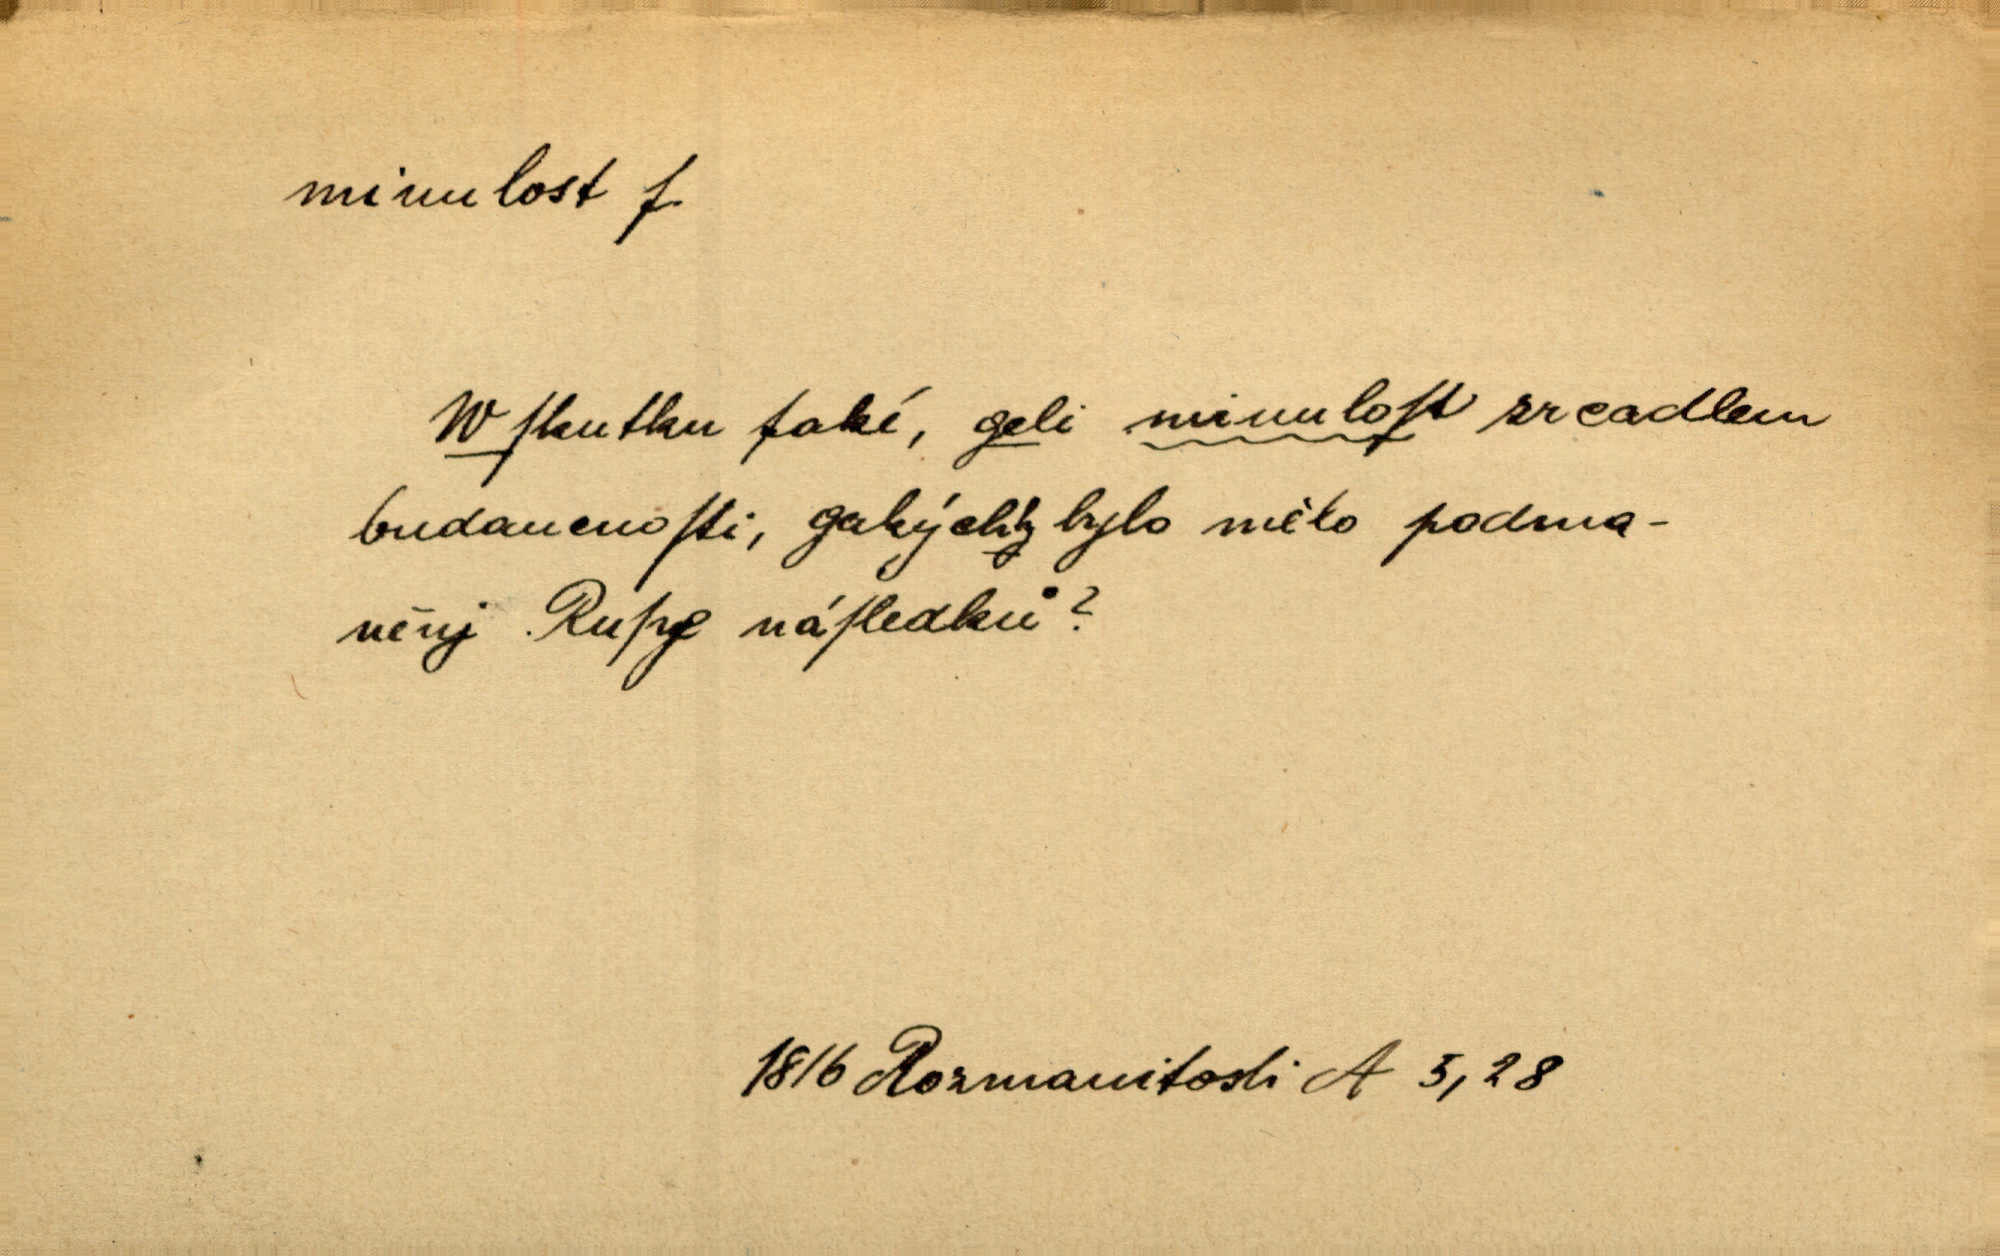 minulost f.
W ſkutku také, geli minuloſt zrcadlem
budaucnoſti, gakýchžby lo mělo podma-
něnj Ruſye náſledků?
1816 Rozmanitosti A 5, 28